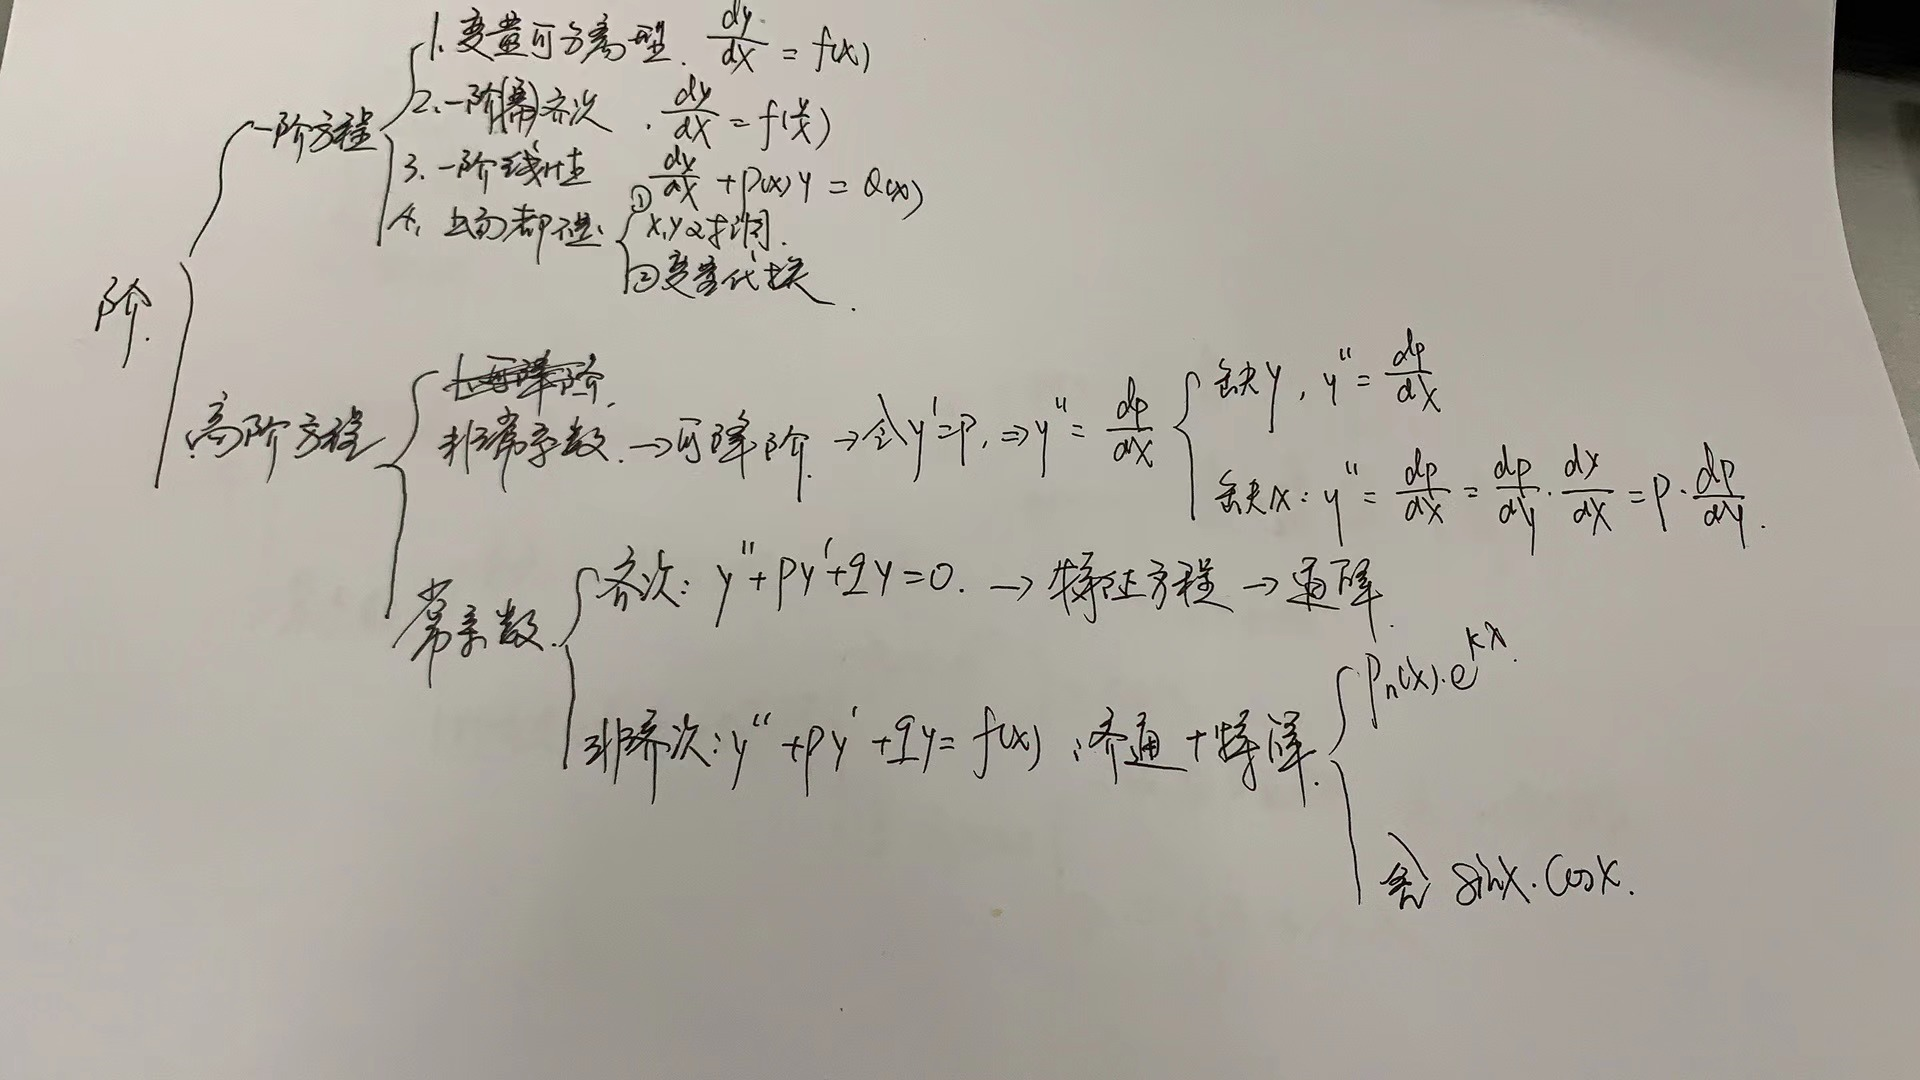 1. 变量可分离型. dy/dx = f(x)
2. 一阶(幂)齐次. dy/dx = f(y/x)
一阶方程
3. 一阶线性 dy/dx + p(x)y = Q(x)
4. 上面都不是: ① x,y对调.
② 变量代换.
阶.
高阶方程
非常系数. → 可降阶. → 令y'=p, ⇒ y'' = dp/dx
缺y, y'' = dp/dx
缺x: y'' = dp/dx = dp/dy · dy/dx = p · dp/dy.
常系数.
齐次: y''+py'+qy=0. → 特征方程 → 通解.
非齐次: y''+py'+qy=f(x) 齐通+特解.
Pn(x)·e^kx.
含 sinx. cosx.